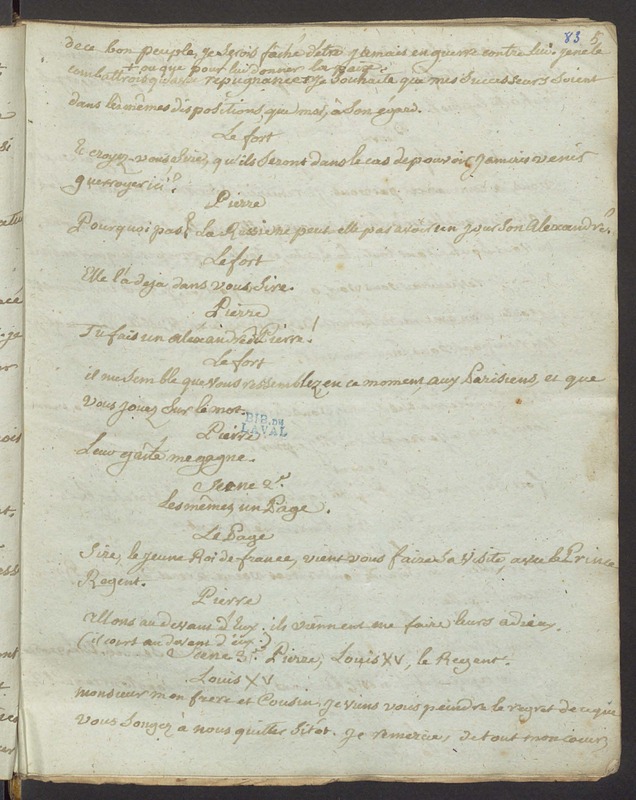 83 5
de ce bon peuple, je serois fâché d'etre jamais en guerre contre lui. je ne le
+ ou que pour lui donner la paix.
combattrois qu'avec repugnance+ je souhaite que mes successeurs soient
dans les mêmes dispositions, que moi, à son egard.
Le fort
Et croyez-vous Sire, qu'ils seront dans le cas de pouvoir jamais venir
guerroyer ici?
Pierre
Pourquoi pas? La Russie ne peut elle pas avoir un jour son Alexandre?
Le fort
Elle l'a deja dans vous Sire.
Pierre
Tu fais un Alexandre de Pierre!
Le fort
il me semble que vous ressemblez en ce moment, aux Parisiens, et que
vous jouez sur le mot.
BIB. DE
LAVAL
Pierre
Leur gaîté me gagne.
Scene 2e.
Les mêmes, un Page.
Le Page
Sire, le jeune Roi de france, vient vous faire sa visite, avec le Prince
Regent.
Pierre
Allons au devant d'Eux; ils viennent me faire leurs adieux.
(il court au devant d'eux.)
Scene 3e. Pierre, Louis XV, le Regent.
Louis XV
monsieur mon frere et Cousin, je viens vous peindre le regret de ce que
vous songez à nous quitter sitôt. Je remercie, de tout mon coeur,